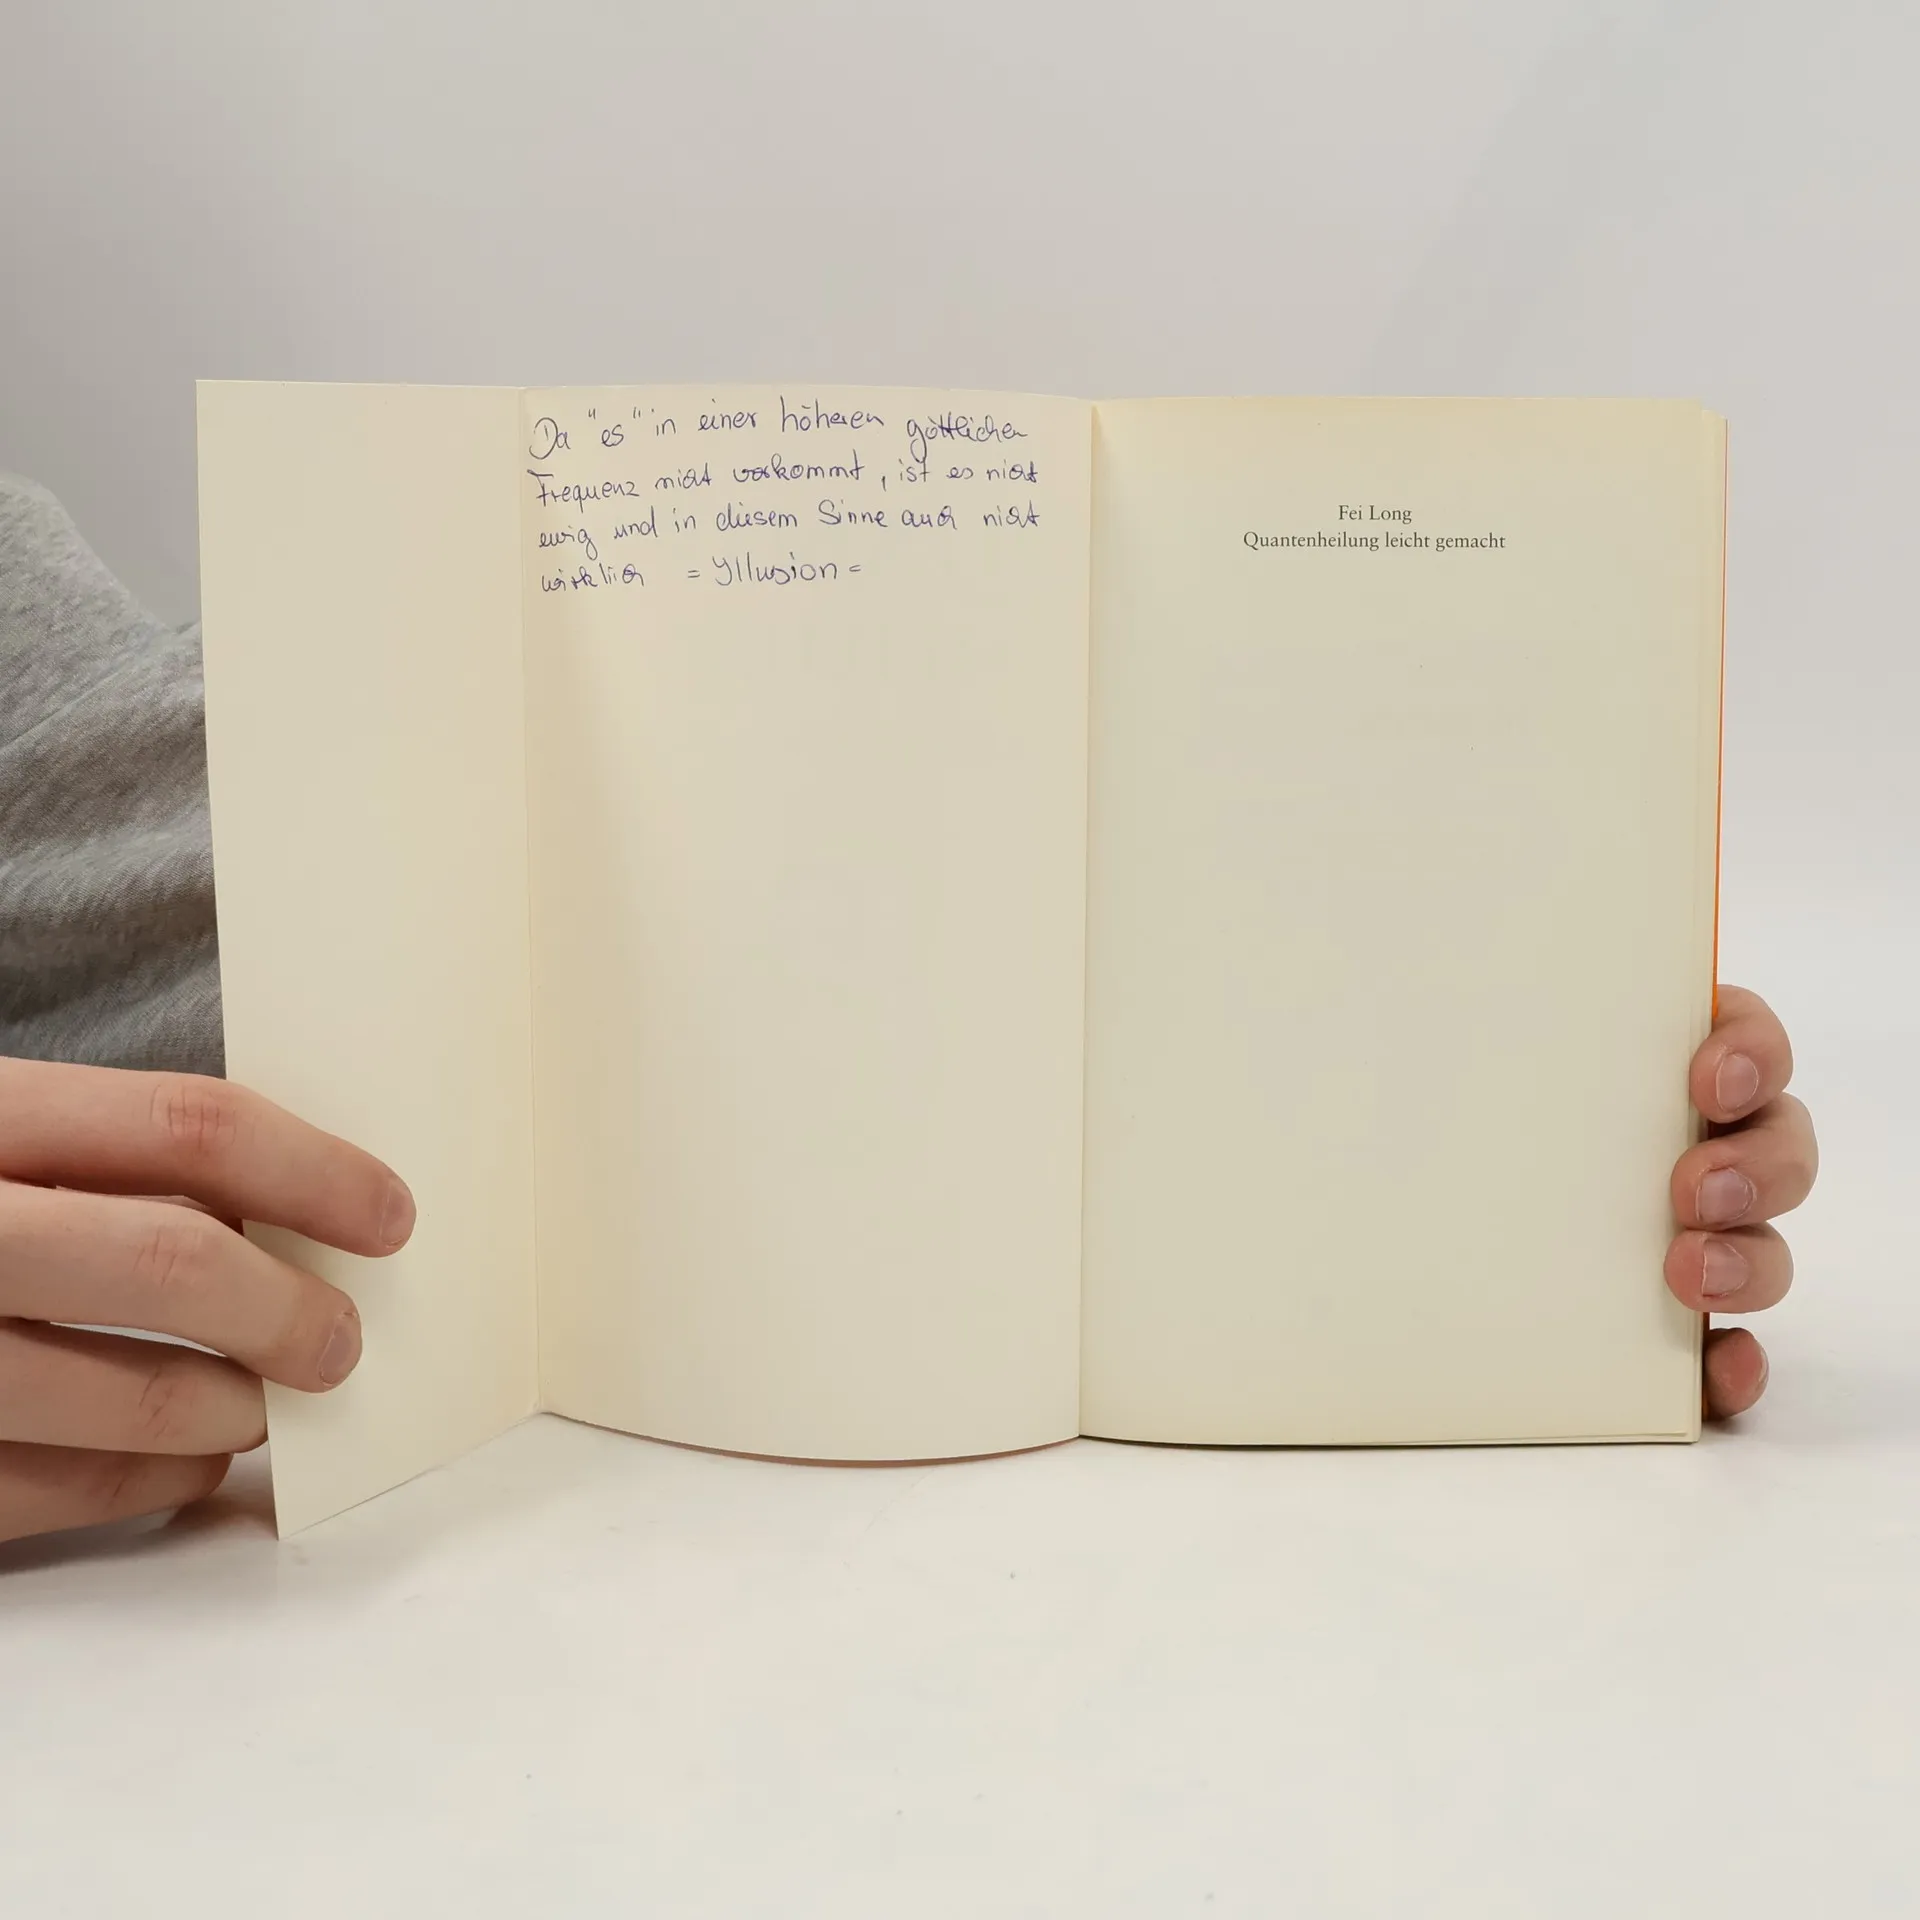 Da "es" in einer höheren göttlichen
Frequenz nicht vorkommt, ist es nicht
ewig und in diesem Sinne auch nicht
wirklich = Yllusion =
Fei Long
Quantenheilung leicht gemacht